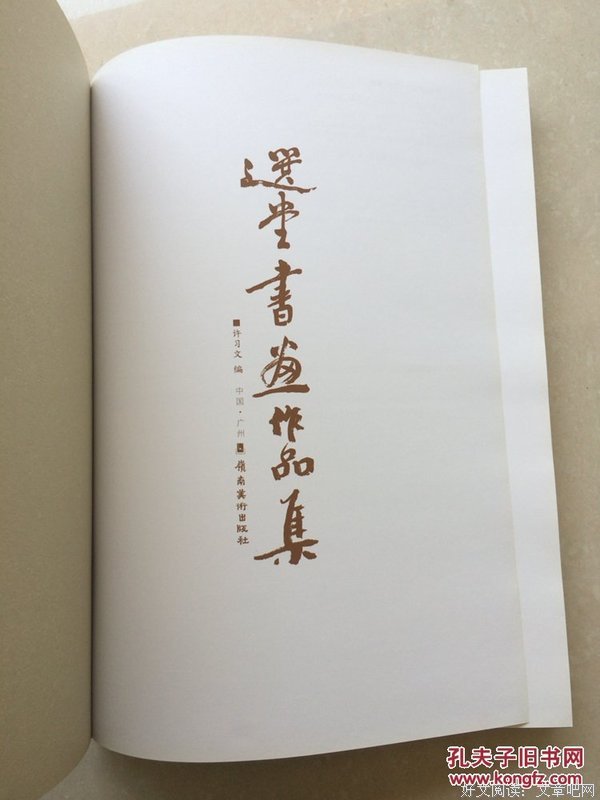 選堂書画作品集
许习文 编 中国·广州 嶺南美術出版社
孔夫子旧书网
www.kongfz.com
好文阅读：文章吧网